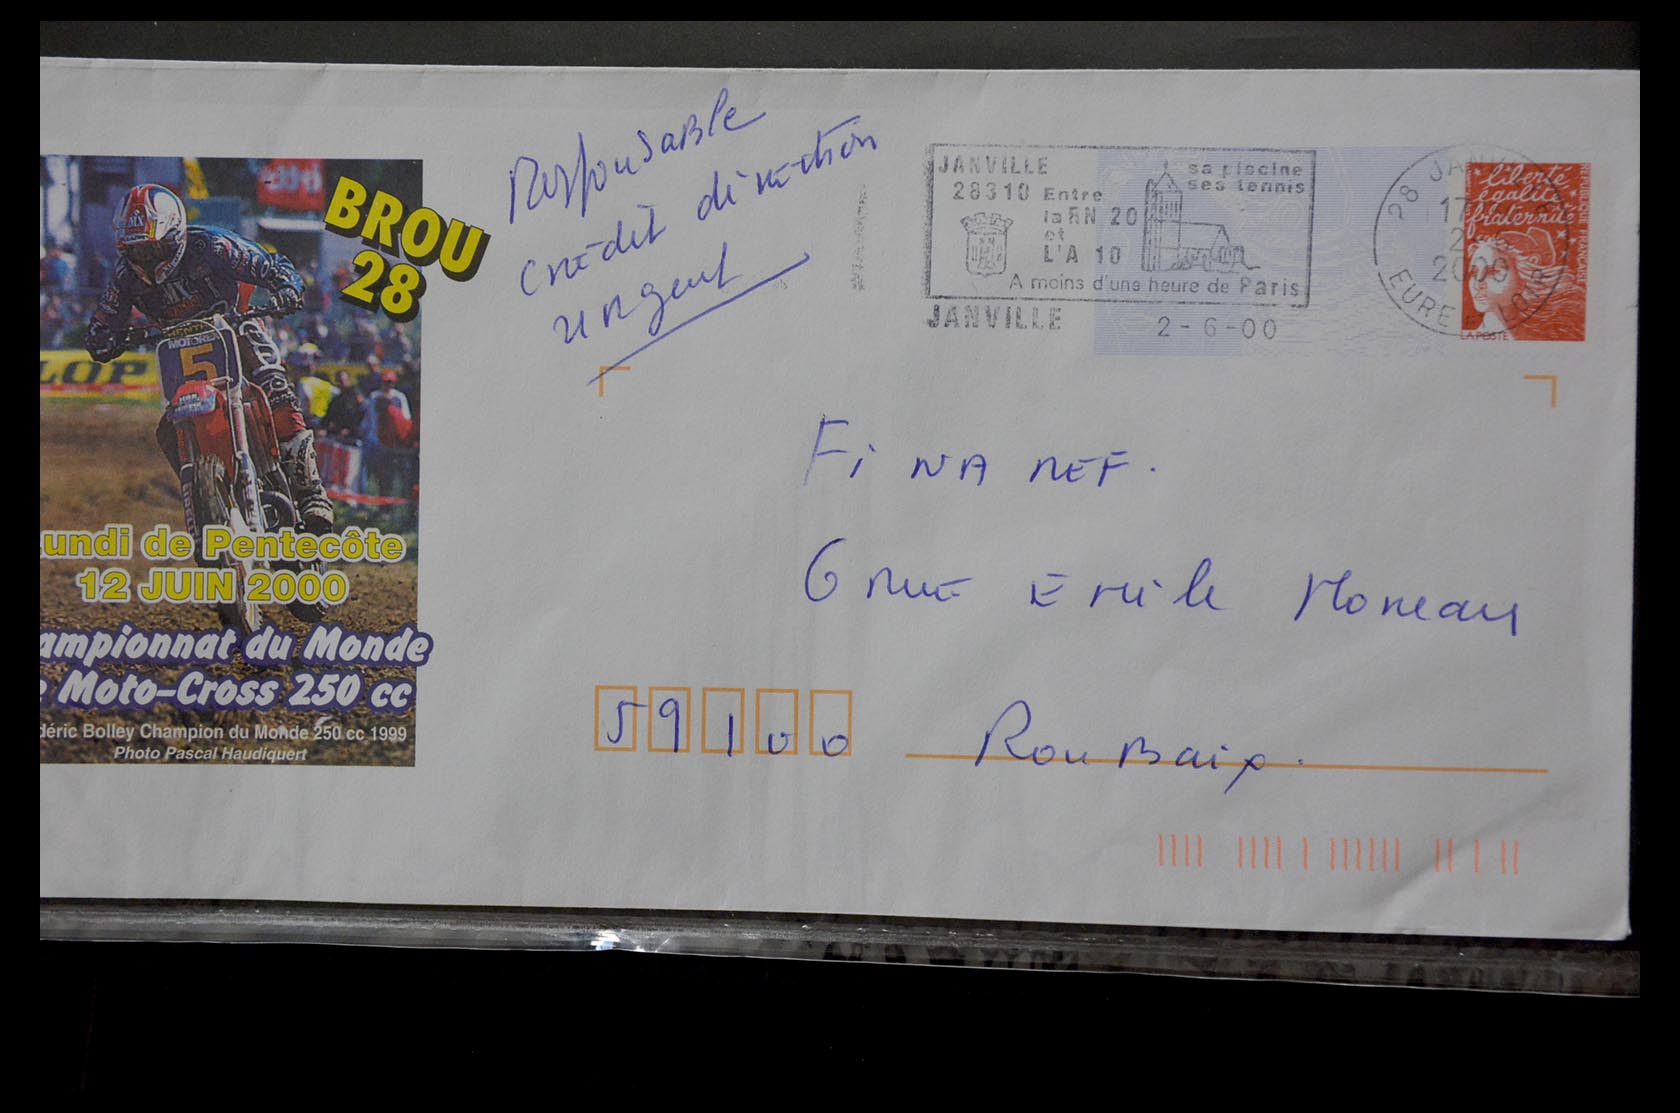 Responsable
crédit direction
urgent
JANVILLE
28310 Entre
la RN 20
et
L'A 10
sa piscine
ses tennis
A moins d'une heure de Paris
JANVILLE
2-6-00
28 JANVILLE
17
2
2000
EURE LOIR
liberté
égalité
fraternité
REPUBLIQUE FRANÇAISE
LA POSTE
BROU
28
MX
MOTOREX
5
LOP
undi de Pentecôte
12 JUIN 2000
ampionnat du Monde
e Moto-Cross 250 cc
déric Bolley Champion du Monde 250 cc 1999
Photo Pascal Haudiquert
FiNAREF.
6 rue Emile Moreau
59100 Roubaix.